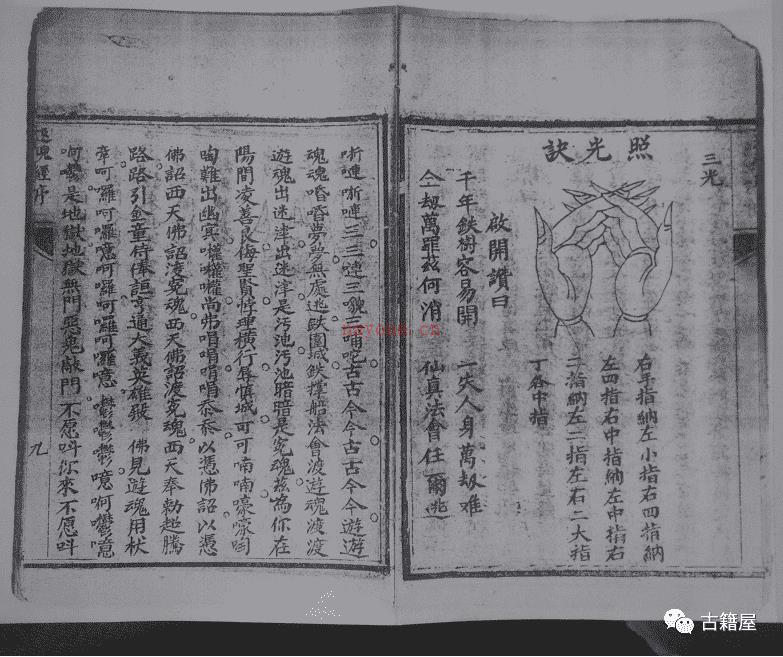 三光
照光訣
右手指納左小指右四指納
左四指右中指納左中指右
二指納左二指左右二大指
丁各中指
啟開讚曰
千年鉄樹容易開 一失人身萬刼难
刼萬罪茲何消 仙真法會任爾逃
唽嗹唽嗹三三嗹三貌三哺吃古古今今古古今今遊遊
魂魂唔唔夢夢無處逃鉄圍城鉄撑船法會渡遊魂渡渡
遊魂出迷津出迷津是污池污池暗暗是冤魂茲為你在
陽間凌善良侮聖賢悖理橫行辱慎城可可喃喃嚎嚎啕
啕難出幽冥嚾嚾嚾尚弗唱唱唱唱忝忝以憑佛詔以憑
佛詔西天佛詔渡冤魂西天佛詔渡冤魂西天奉勅超騰
路路引金童侍俸誆亨通大義英雄發佛見遊魂用杖
牽呵囉呵囉噫呵囉呵囉呵囉噫鬱鬱鬱噫呵鬱噫
呵鬱是地獄地獄無門惡鬼敲門不愿呌你來不愿呌
魂經序
九
nayona.cn
古籍屋